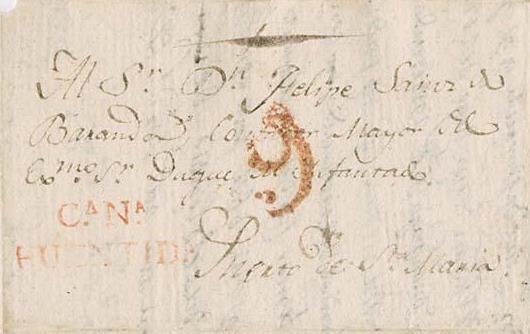 Al Sr. Dn. Felipe Sainz de
Baranda Contador Mayor del
Exmo. Sr. Duque del Infantado.
9
CA. NA.
FUENTID.
Puerto de Sta. Maria.